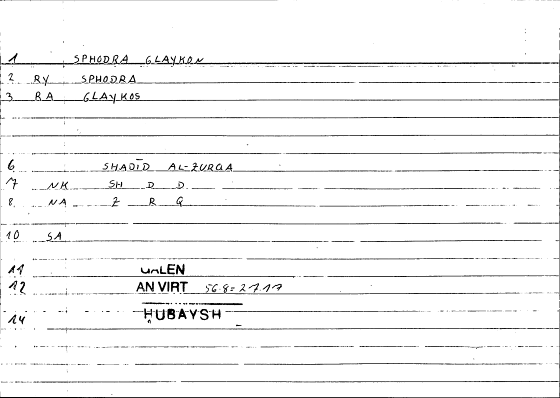 1 SPHODRA GLAYKON
2 RY SPHODRA
3 RA GLAYKOS
6 SHADĪD AL-ZURQA
7 NK SH D D
8 NA Z R Q
10 SA
11 GALEN
12 AN VIRT 568=2717
14 HUBAYSH